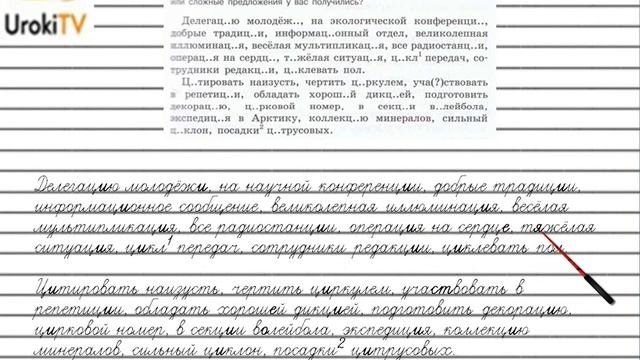 UrokiTV
или сложные предложения у вас получились?
Делегац..ю молодёж.., на экологической конференци..,
добрые традиц..и, информац..онный отдел, великолепная
иллюминац..я, весёлая мультипликац..я, все радиостанц..и,
операц..я на сердц.., т..жёлая ситуац..я, ц..кл¹ передач, со-
трудники редакц..и, ц..клевать пол.
Ц..тировать наизусть, чертить ц..ркулем, уча(?)ствовать
в репетиц..и, обладать хорош..й дикц..ей, подготовить
декорац..ю, ц..рковой номер, в секц..и в..лейбола,
экспедиц..я в Арктику, коллекц..ю минералов, сильный
ц..клон, посадки² ц..трусовых.
Делегацию молодёжи, на научной конференции, добрые традиции,
информационное сообщение, великолепная иллюминация, весёлая
мультипликация, все радиостанции, операция на сердце, тяжёлая
ситуация, цикл¹ передач, сотрудники редакции, циклевать пол.
Цитировать наизусть, чертить циркулем, участвовать в
репетиции, обладать хорошей дикцией, подготовить декорацию,
цирковой номер, в секции волейбола, экспедиция, коллекцию
минералов, сильный циклон, посадки² цитрусовых.